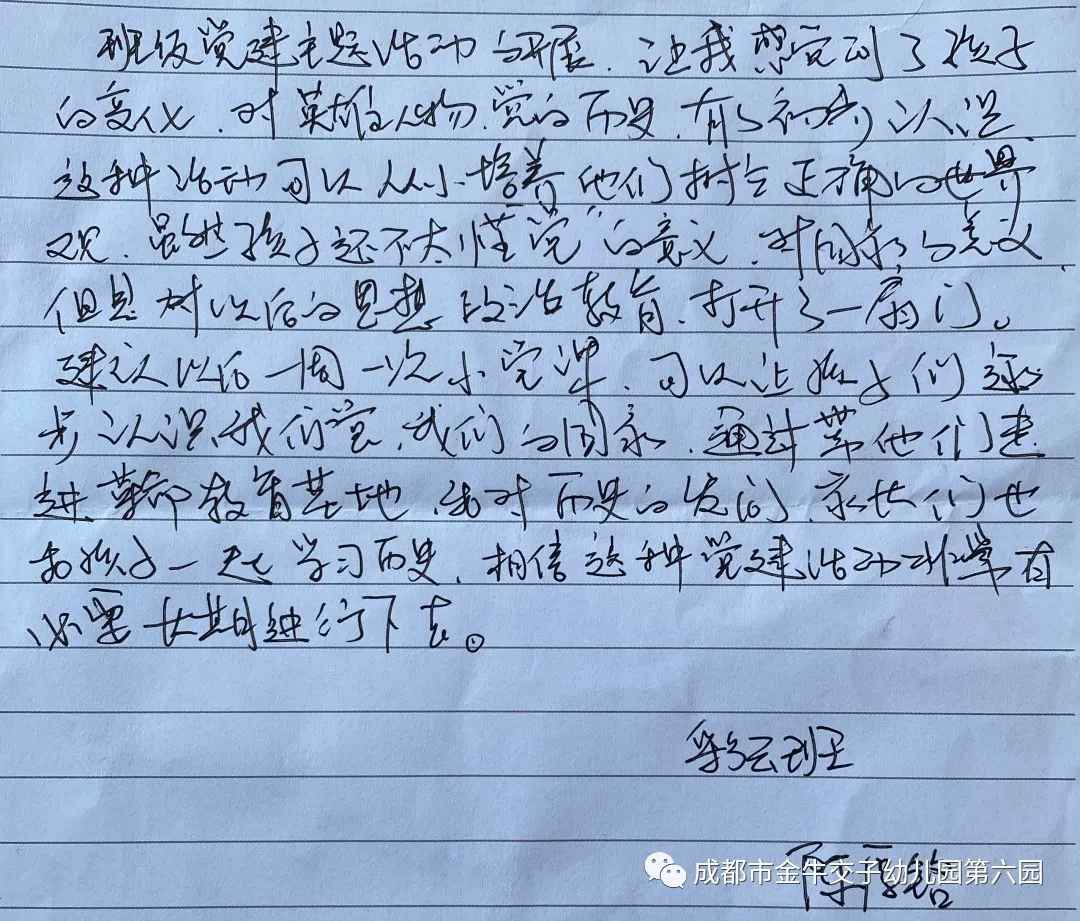 班级党建主题活动的开展，让我感觉到了孩子
的变化，对英雄人物、党的历史，有了初步认识，
这种活动可以从小培养他们树立正确的世界
观，虽然孩子还不太懂“党”的意义，对国家的意义，
但是对以后的思想政治教育，打开了一扇门。
建议以后一周一次小党课，可以让孩子们逐
步认识我们党，我们的国家，通过带他们走
进革命教育基地，对历史的发问，家长们也
和孩子一起学习历史，相信这种党建活动非常有
必要长期进行下去。
彩云班
陈
成都市金牛交子幼儿园第六园